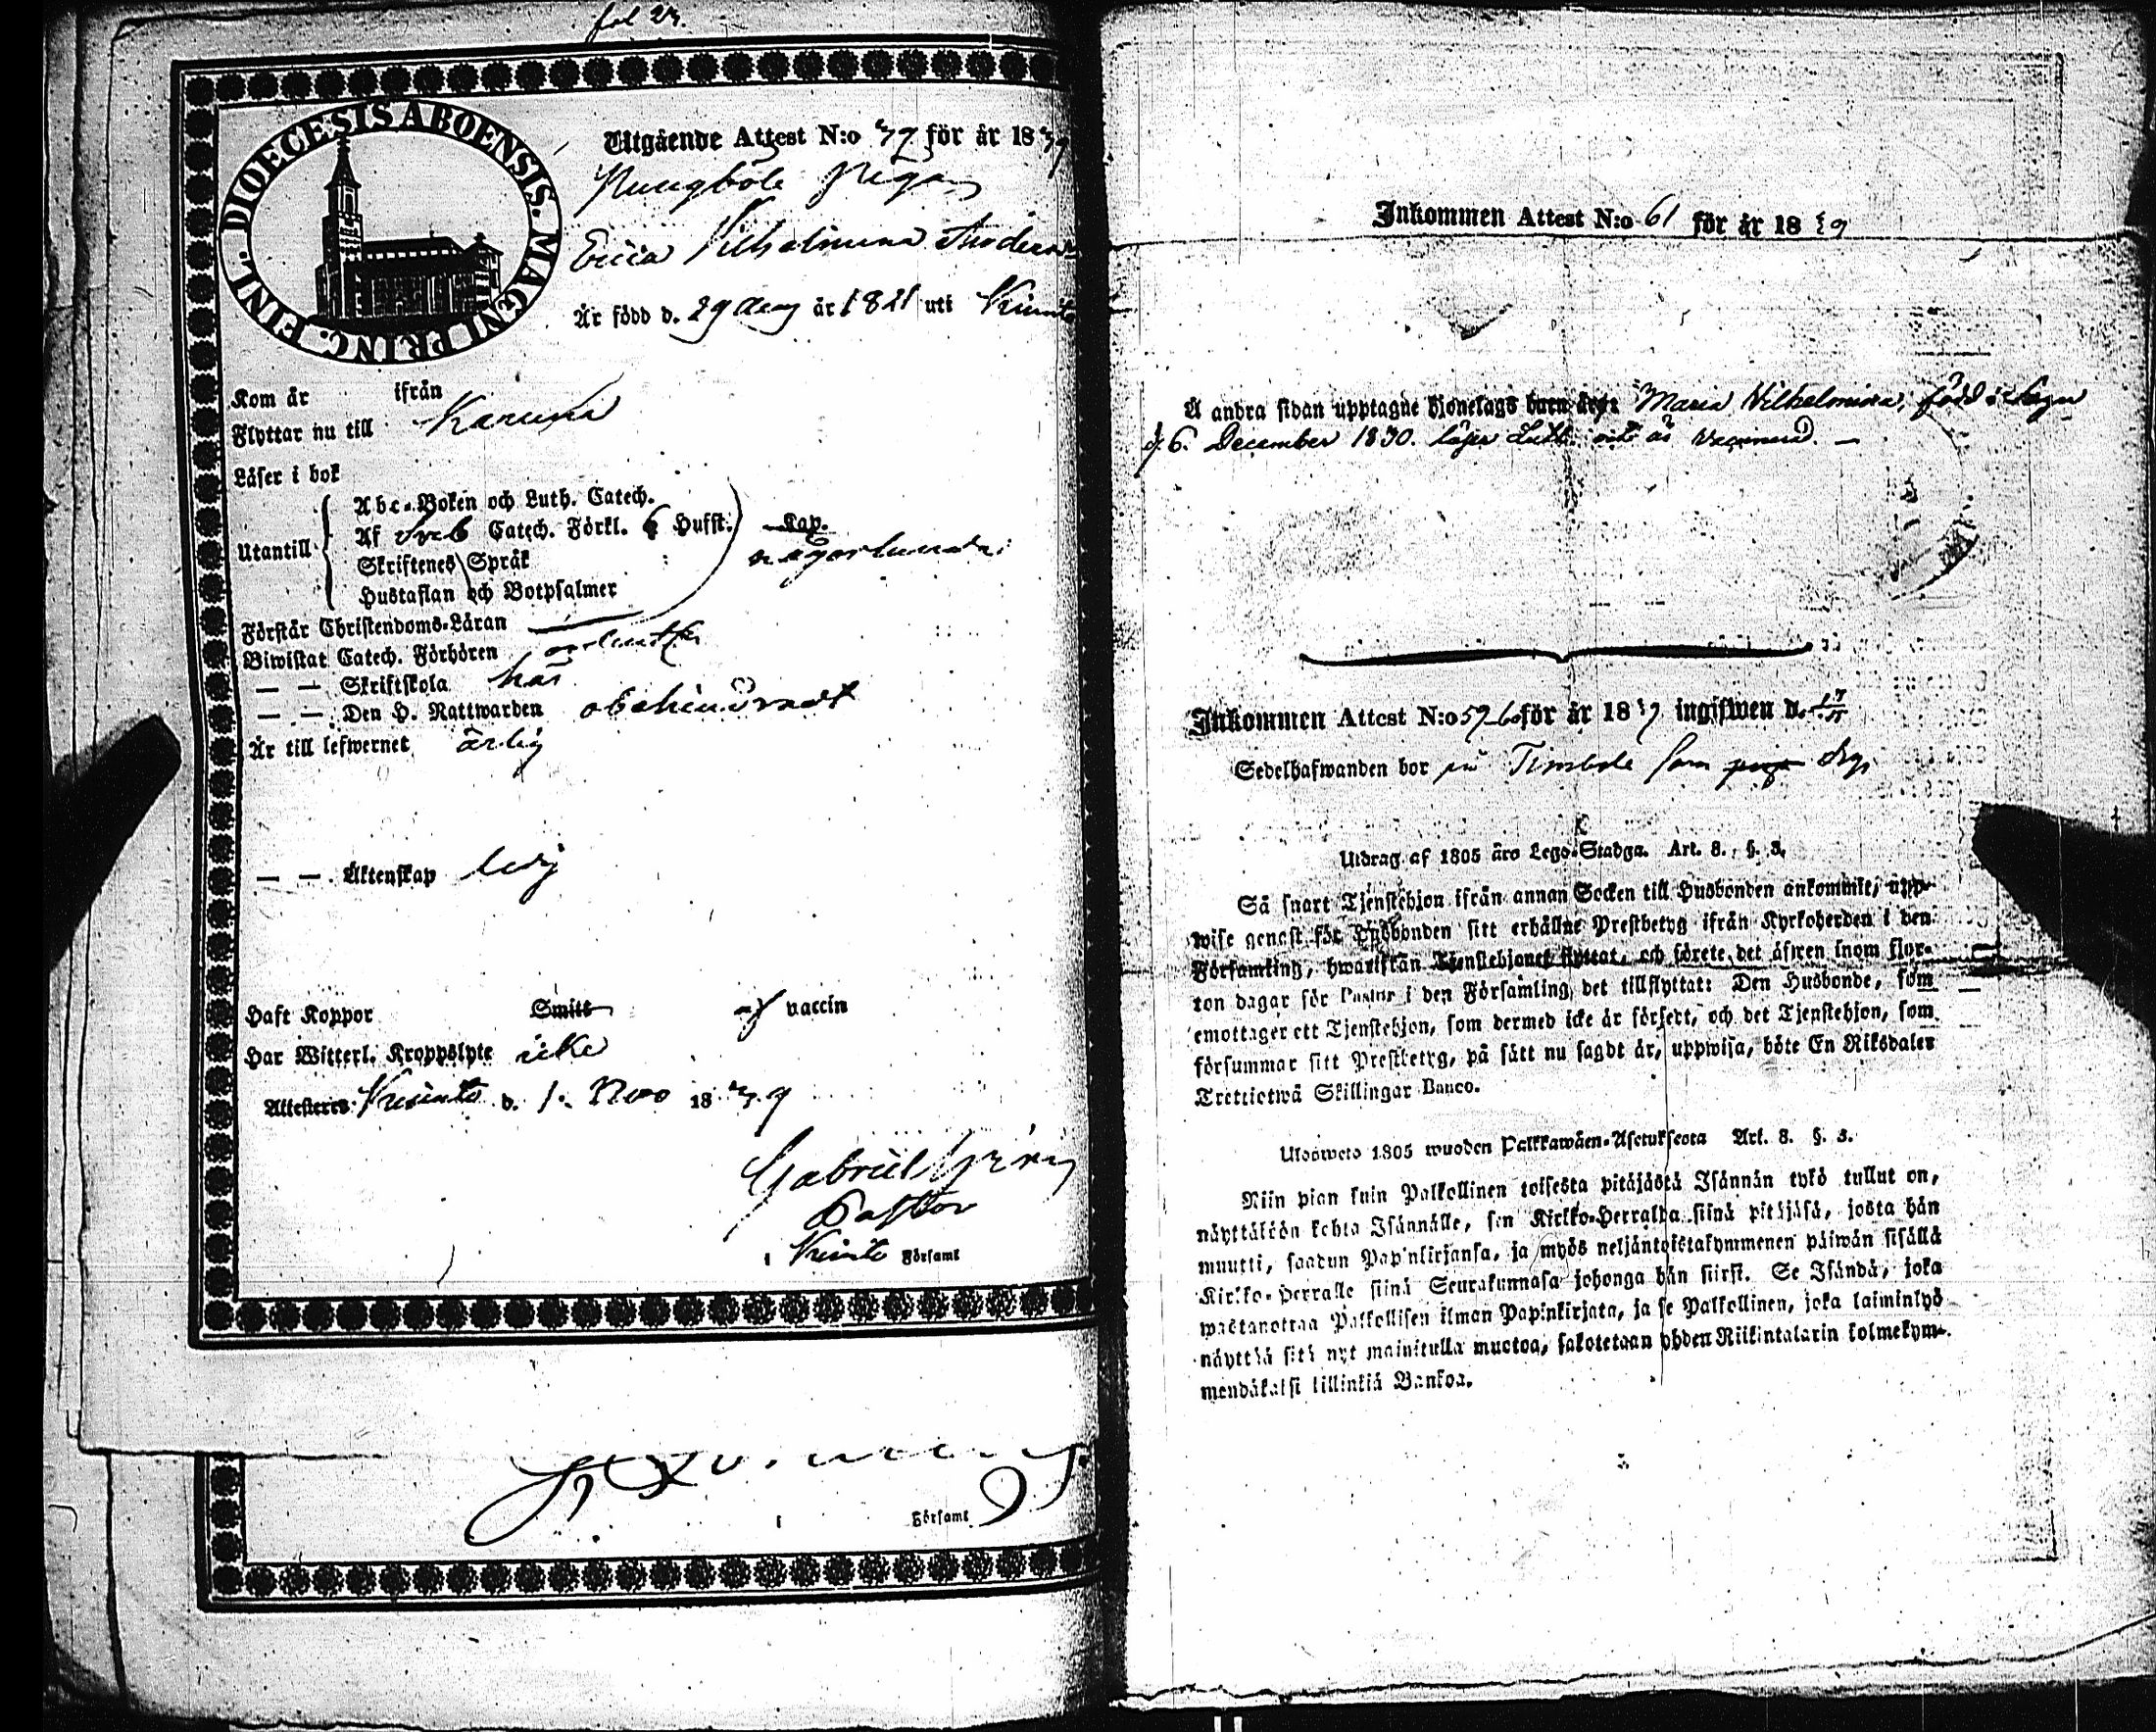 fol 27.
DIOECESIS ABOENSIS. MAGNI PRINC. FINL.
Utgående Attest N:o 37 för år 1839
Pungböle Pigan
Erica Vilhelmina Anders
Är född d. 29 Aug år 1821 uti Kimito
Kom år ifrån
Flyttar nu till Karuna
Läser i bok
Utantill
Abc-Boken och Luth. Catech.
Af Sveb Catech. Förkl. 6 Hufst. Kap.
Skriftenes Språk någorlunda
Hustaflan och Botpsalmer
Förstår Christendoms-Läran
Biwistat Catech. Förhören ordentl
— — Skriftskola här
— — Den H. Nattwarden obehindradt
Är till lefwernet ärlig
— — Äktenskap ledig
Haft Koppor Smitt af vaccin
Har Witterl. Kroppslyte icke
Attesteres Kimito d. 1. Nov 1839
Gabriel
Pastor
i Kimito Församl
i Församl
Inkommen Attest N:o 61 för år 1839
Å andra sidan upptagne Hjonelags barn äro: Maria Vilhelmina, född i Sagu
d. 6. December 1830. läser Luth. är vaccinerad. —
Inkommen Attest N:o 59 för år 1839 ingifwen d. 17/11
Sedelhafwanden bor på Timböle som piga
Utdrag af 1805 års Lego-Stadga. Art. 8. §. 3.
Så snart Tjenstehjon ifrån annan Socken till Husbonden ankommit, upp-
wise genast för Husbonden sitt erhållne Prestbetyg ifrån Kyrkoherden i den
Församling, hwarifrån Tjenstehjonet flyttat, och förete det äfwen inom fjor-
ton dagar för Pastor i den Församling, det tillflyttat: Den Husbonde, som
emottager ett Tjenstehjon, som dermed icke är försedt, och det Tjenstehjon, som
försummar sitt Prestbetyg, på sätt nu sagdt är, uppwisa, böte En Riksdaler
Trettiotwå Skillingar Banco.
Ulosweto 1805 wuoden Palkkawäen-Asetuksesta Art. 8. §. 3.
Niin pian kuin Palkollinen toisesta pitäjästä Isännän tykö tullut on,
näyttäköön kohta Isännälle, sen Kirkko-Herralda siinä pitäjäsä, josta hän
muutti, saadun Papinkirjansa, ja myös neljäntoistakymmenen päiwän sisällä
Kirkko-Herralle siinä Seurakunnasa johonga hän siirsi. Se Isändä, joka
wastanottaa Palkollisen ilman Papinkirjata, ja se Palkollinen, joka laiminlyö
näyttää sitä nyt mainitulla muotoa, sakotetaan yhden Riikintalarin kolmekym-
mendäkaksi killinkiä Bankoa.